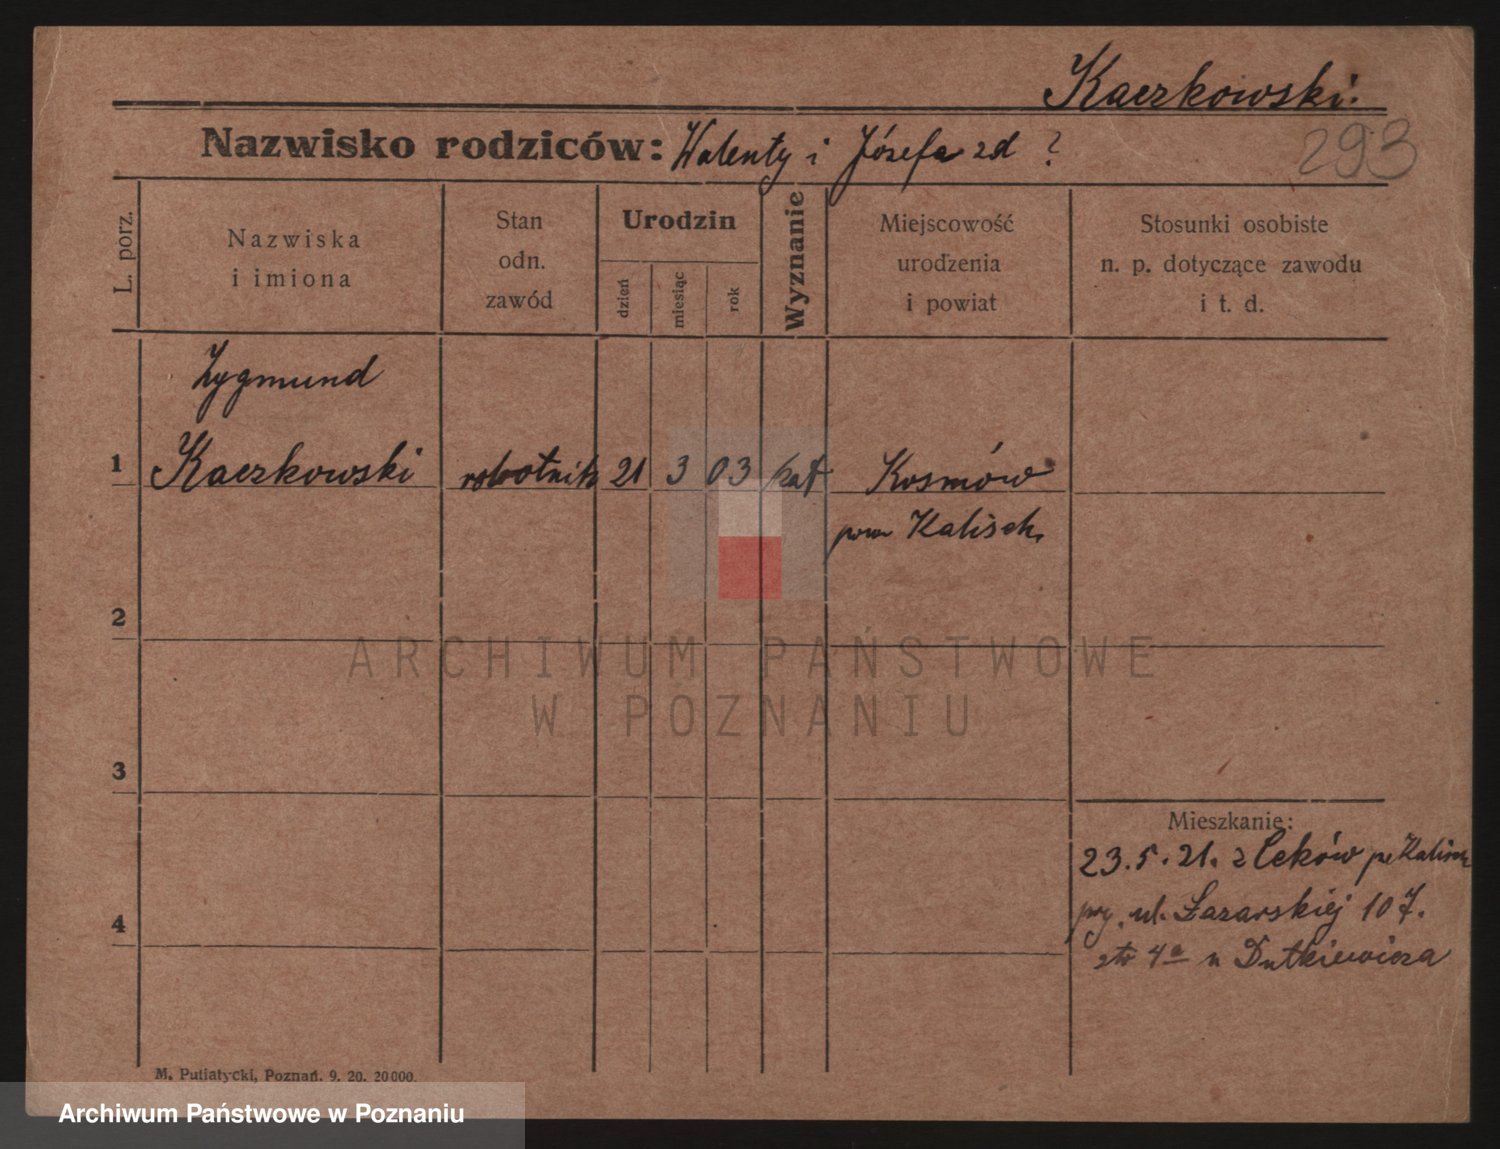 Kaczkowski.
Nazwisko rodziców: Walenty i Józefa zd ?
293
L. porz.
Nazwiska
i imiona
Stan
odn.
zawód
Urodzin
dzień
miesiąc
rok
Wyznanie
Miejscowość
urodzenia
i powiat
Stosunki osobiste
n. p. dotyczące zawodu
i t. d.
Zygmund
1 Kaczkowski robotnik 21 3 03 kat Kosmów
pow Kalisch.
2
ARCHIWUM PAŃSTWOWE
W POZNANIU
3
Mieszkanie:
23.5.21. z Ceków Kalisz
ul. Łazarskiej 10
4
4a u Dutkiewicza
M. Putiatycki, Poznań. 9. 20. 20000.
Archiwum Państwowe w Poznaniu